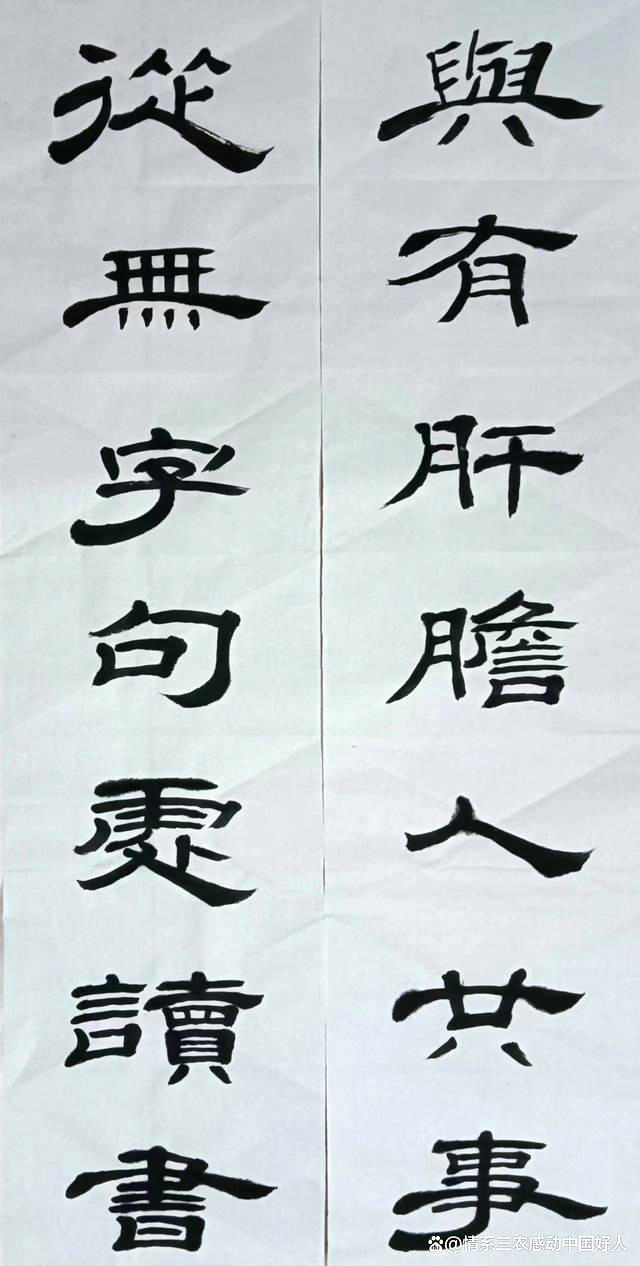 與有肝膽人共事
從無字句處讀書
@情系三农感动中国好人